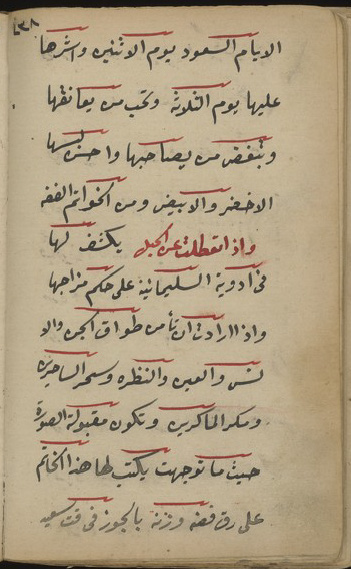 الايام السعود يوم الاثنين واشرها
عليها يوم الثلاثه وتحب من يعانقها
وتبغض من يصاحبها واحسن لبسها
الاخضر والابيض ومن الخواتم الفضه
واذا تعطلت عن الحبل يكشف لها
فى ادوية السليمانية على حكم مزاجها
واذا ارادت ان تأمن طوارق الجن والا
نس والعين والنظره وسحر الساحرين
ومكر الماكرين وتكون مقبولة الصورة
حيث ما توجهت يكتب لها هذا الخاتم
على رق فضه وزنه بالجوز فى وقت سعيد